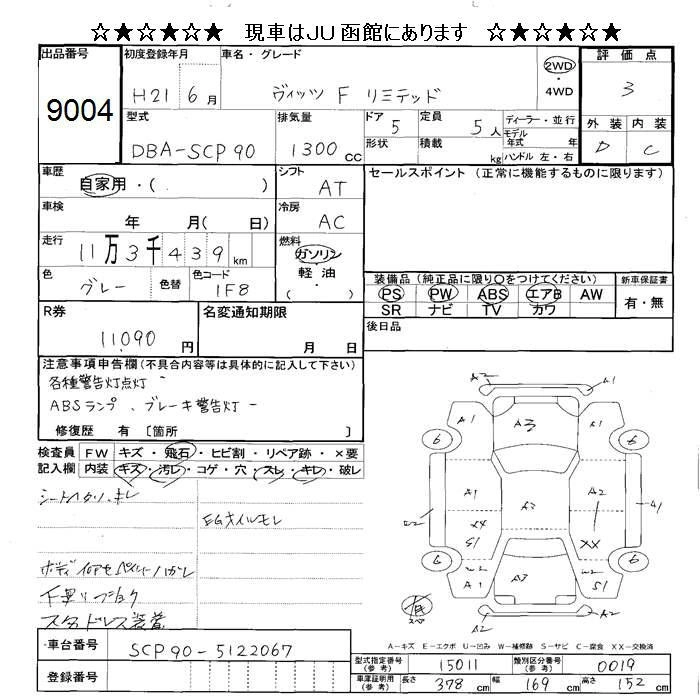 ☆★☆★☆★ 現車はJU函館にあります ☆★☆★☆★
出品番号
9004
初度登録年月
H21 6月
車名・グレード
ヴィッツ F リミテッド
2WD
・4WD
評価点
3
外装 内装
D C
型式
DBA-SCP90
排気量
1300cc
ドア
5
形状
定員
5人
積載
kg
ディーラー・並行
モデル年式 年
ハンドル 左・右
車歴
自家用・( )
シフト
AT
車検
年 月( 日)
冷房
AC
走行
11万3千439km
燃料
ガソリン
軽油
( )
色
グレー
色替
色コード
1F8
セールスポイント(正常に機能するものに限ります)
装備品(純正品に限り○をつけてください)
PS PW ABS エアB AW
SR ナビ TV カワ
新車保証書
有・無
後日品
R券
11,090円
名変通知期限
月 日
注意事項申告欄(不具合内容等は具体的に記入して下さい)
各種警告灯点灯
ABSランプ、ブレーキ警告灯
修復歴 有 [箇所 ]
検査員記入欄
FW キズ・飛石・ヒビ割・リペア跡・×要
内装 キズ・汚レ・コゲ・穴・スレ・キレ・破レ
EGオイルモレ
スタッドレス装着
A2 A1
A1 A3 A1
6 6
A1 A2 A2 A1
S1 XX
6 6
W2 A1 A3 W2 S1
A2
A2
A-キズ E-エクボ U-凹み W-補修跡 S-サビ C-腐食 XX-交換済
車台番号
SCP90-5122067
登録番号
型式指定番号(参考)
15011
類別区分番号(参考)
0019
車庫証明用(参考)
長さ 378cm
幅 169cm
高さ 152cm